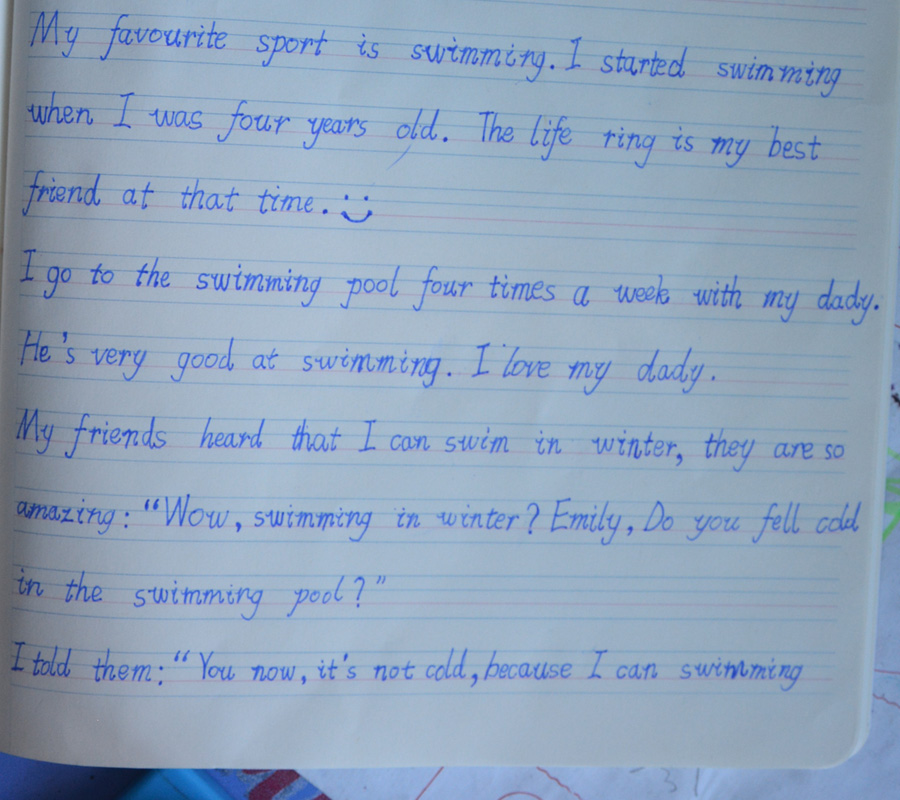 My favourite sport is swimming. I started swimming
when I was four years old. The life ring is my best
friend at that time. :)
I go to the swimming pool four times a week with my dady.
He's very good at swimming. I love my dady.
My friends heard that I can swim in winter, they are so
amazing: "Wow, swimming in winter? Emily, Do you fell cold
in the swimming pool?"
I told them: "You now, it's not cold, because I can swimming